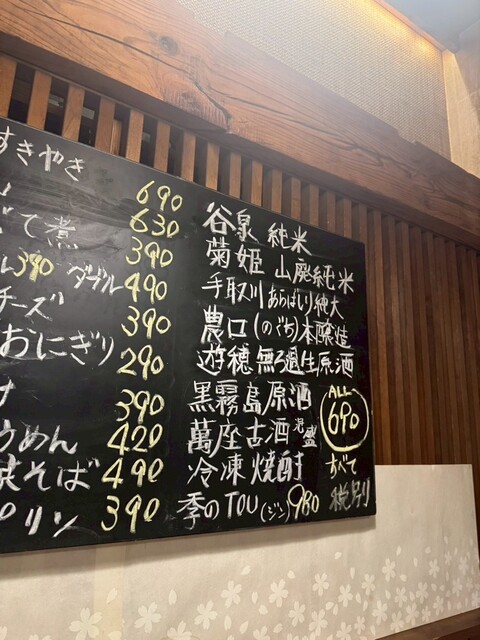 すきやき
690
630
て煮 390
390 ダブル 490
チーズ 390
おにぎり 290
390
うめん 420
焼そば 490
プリン 390
谷泉 純米
菊姫 山廃純米
手取川 あらばしり 純大
農口(のぐち)本醸造
遊穂 無ろ過生原酒
黒霧島原酒
萬座古酒 泡盛
冷凍焼酎
季のTOU(ジン)980
ALL
690
すべて
税別り